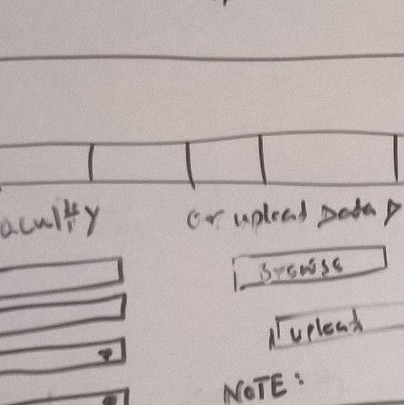 aculty
or upload Data
Browse
upload
NOTE: